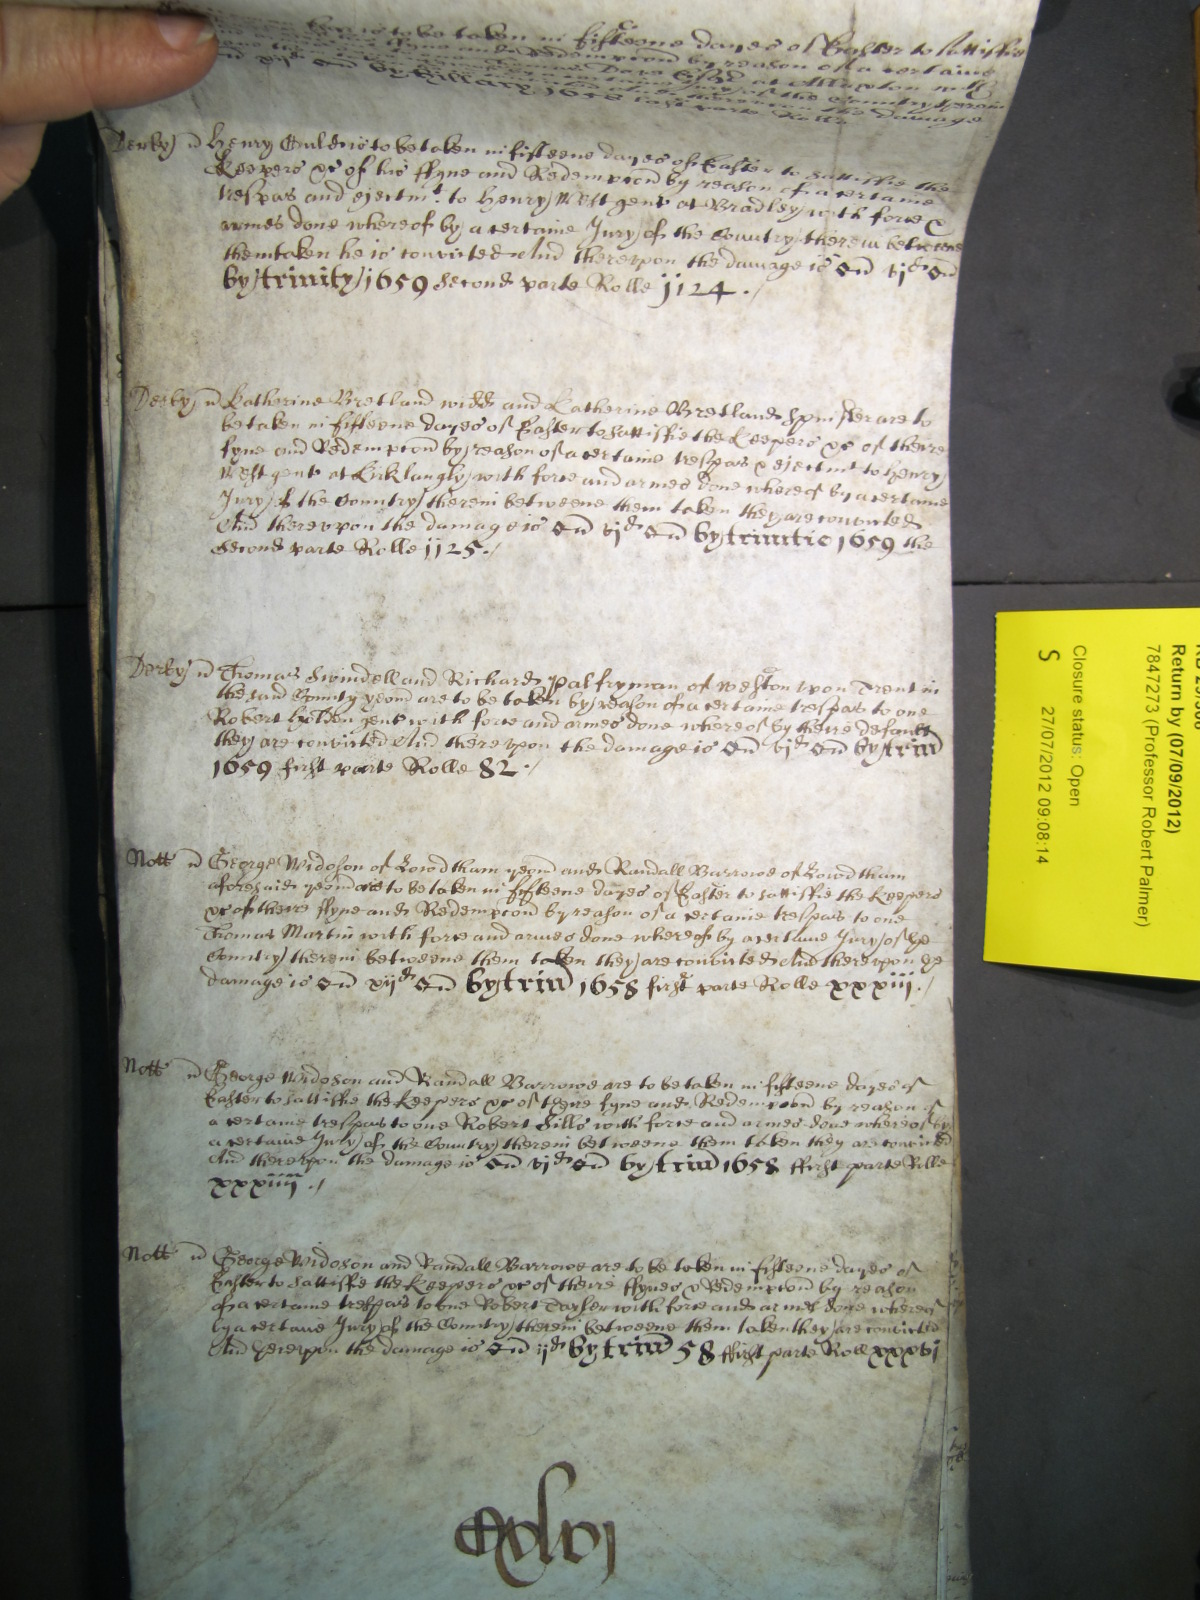 to be taken in fifteene dayes of Easter to sattisfie
by reason of a certaine
at
the Country therein
by Hillary 1658 last parte Rolle the damage
Derby Henry Guld is to be taken in fifteene dayes of Easter to sattisfie the
Keepers &c of his ffyne and Redempcon by reason of a certaine
trespas and ejectmt. to Henry West gent at Bradley with force &
armes done whereof by a certaine Jury of the Country therein betweene
them taken he is convicted And thereupon the damage is vjd
by trinity 1659 second parte Rolle 1124.
Derby Katherine Bretland widd and Katherine Bretland Spinster are to
be taken in fifteene dayes of Easter to sattisfie the Keepers &c of theire
fyne and Redempcon by reason of a certaine trespas & ejectmt to Henry
West gent at Kirklangly with force and armes done whereof by a certaine
Jury of the Country therein betweene them taken they are convicted
And thereupon the damage is vjd by trinitie 1659 the
Second parte Rolle 1125.
Derby Thomas Swindell and Richard Palfryman of Weston upon Trent in
the said County yeom are to be taken by reason of a certaine trespas to one
Robert Holden gent with force and armes done whereof by theire default
they are convicted And thereupon the damage is vjd by trin
1659 first parte Rolle 82.
Nott George Widoson of Lowdham yeom and Randall Barrowe of Lowdham
aforesaid yeom are to be taken in fifteene dayes of Easter to sattisfie the Keepers
&c of theire ffyne and Redempcon by reason of a certaine trespas to one
Thomas Martin with force and armes done whereof by a certaine Jury of the
Country therein betweene them taken they are convicted And thereupon the
damage is xijd by trin 1658 first parte Rolle xxxiij.
Nott George Widoson and Randall Barrowe are to be taken in fifteene dayes of
Easter to sattisfie the Keepers &c of theire fyne and Redempcon by reason of
a certaine trespas to one Robert Sills with force and armes done whereof by
a certaine Jury of the Country therein betweene them taken they are convicted
And thereupon the damage is vjd by trin 1658 ffirst parte Rolle
xxxiiij.
Nott George Widoson and Randall Barrowe are to be taken in fifteene dayes of
Easter to sattisfie the Keepers &c of theire ffynes & Redempcon by reason
of a certaine trespas to one Robert Tayler with force and armes done whereof
by a certaine Jury of the Country therein betweene them taken they are convicted
And thereupon the damage is ijd by trin 58 ffirst parte Roll xxxvj
Return by (07/09/2012)
7847273 (Professor Robert Palmer)
Closure status: Open
S 27/07/2012 09:08:14